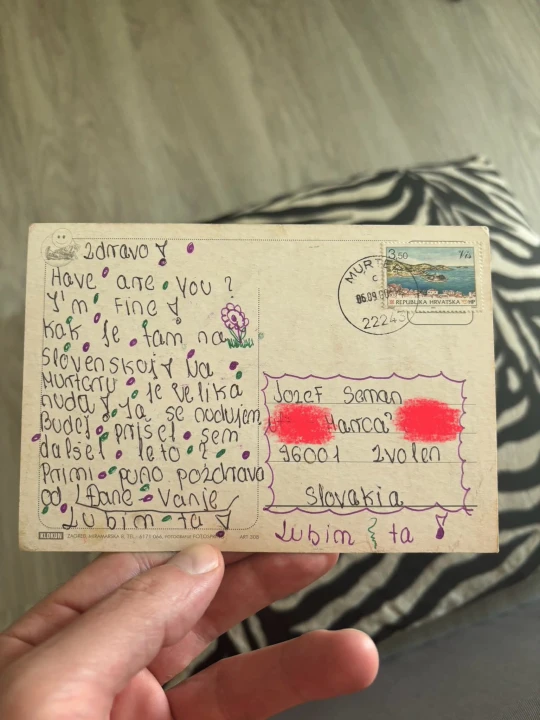 Zdravo!
Have are you?
I'm Fine!
Kak je tam na
Slovenskoj! Na
Murteru je velika
nuda! Ja se nudujem
Budeš prišel sem
dalšel leto?
Primi puno pozdrava
od Vanje
Lubim ta!
KLOKUN ZAGREB, MIRAMARSKA
ART.
MURTER
06.09.
22243
3,50
REPUBLIKA HRVATSKA
Jozef Seman
Hanca
96001 Zvolen
Slovakia
Lubim ta!